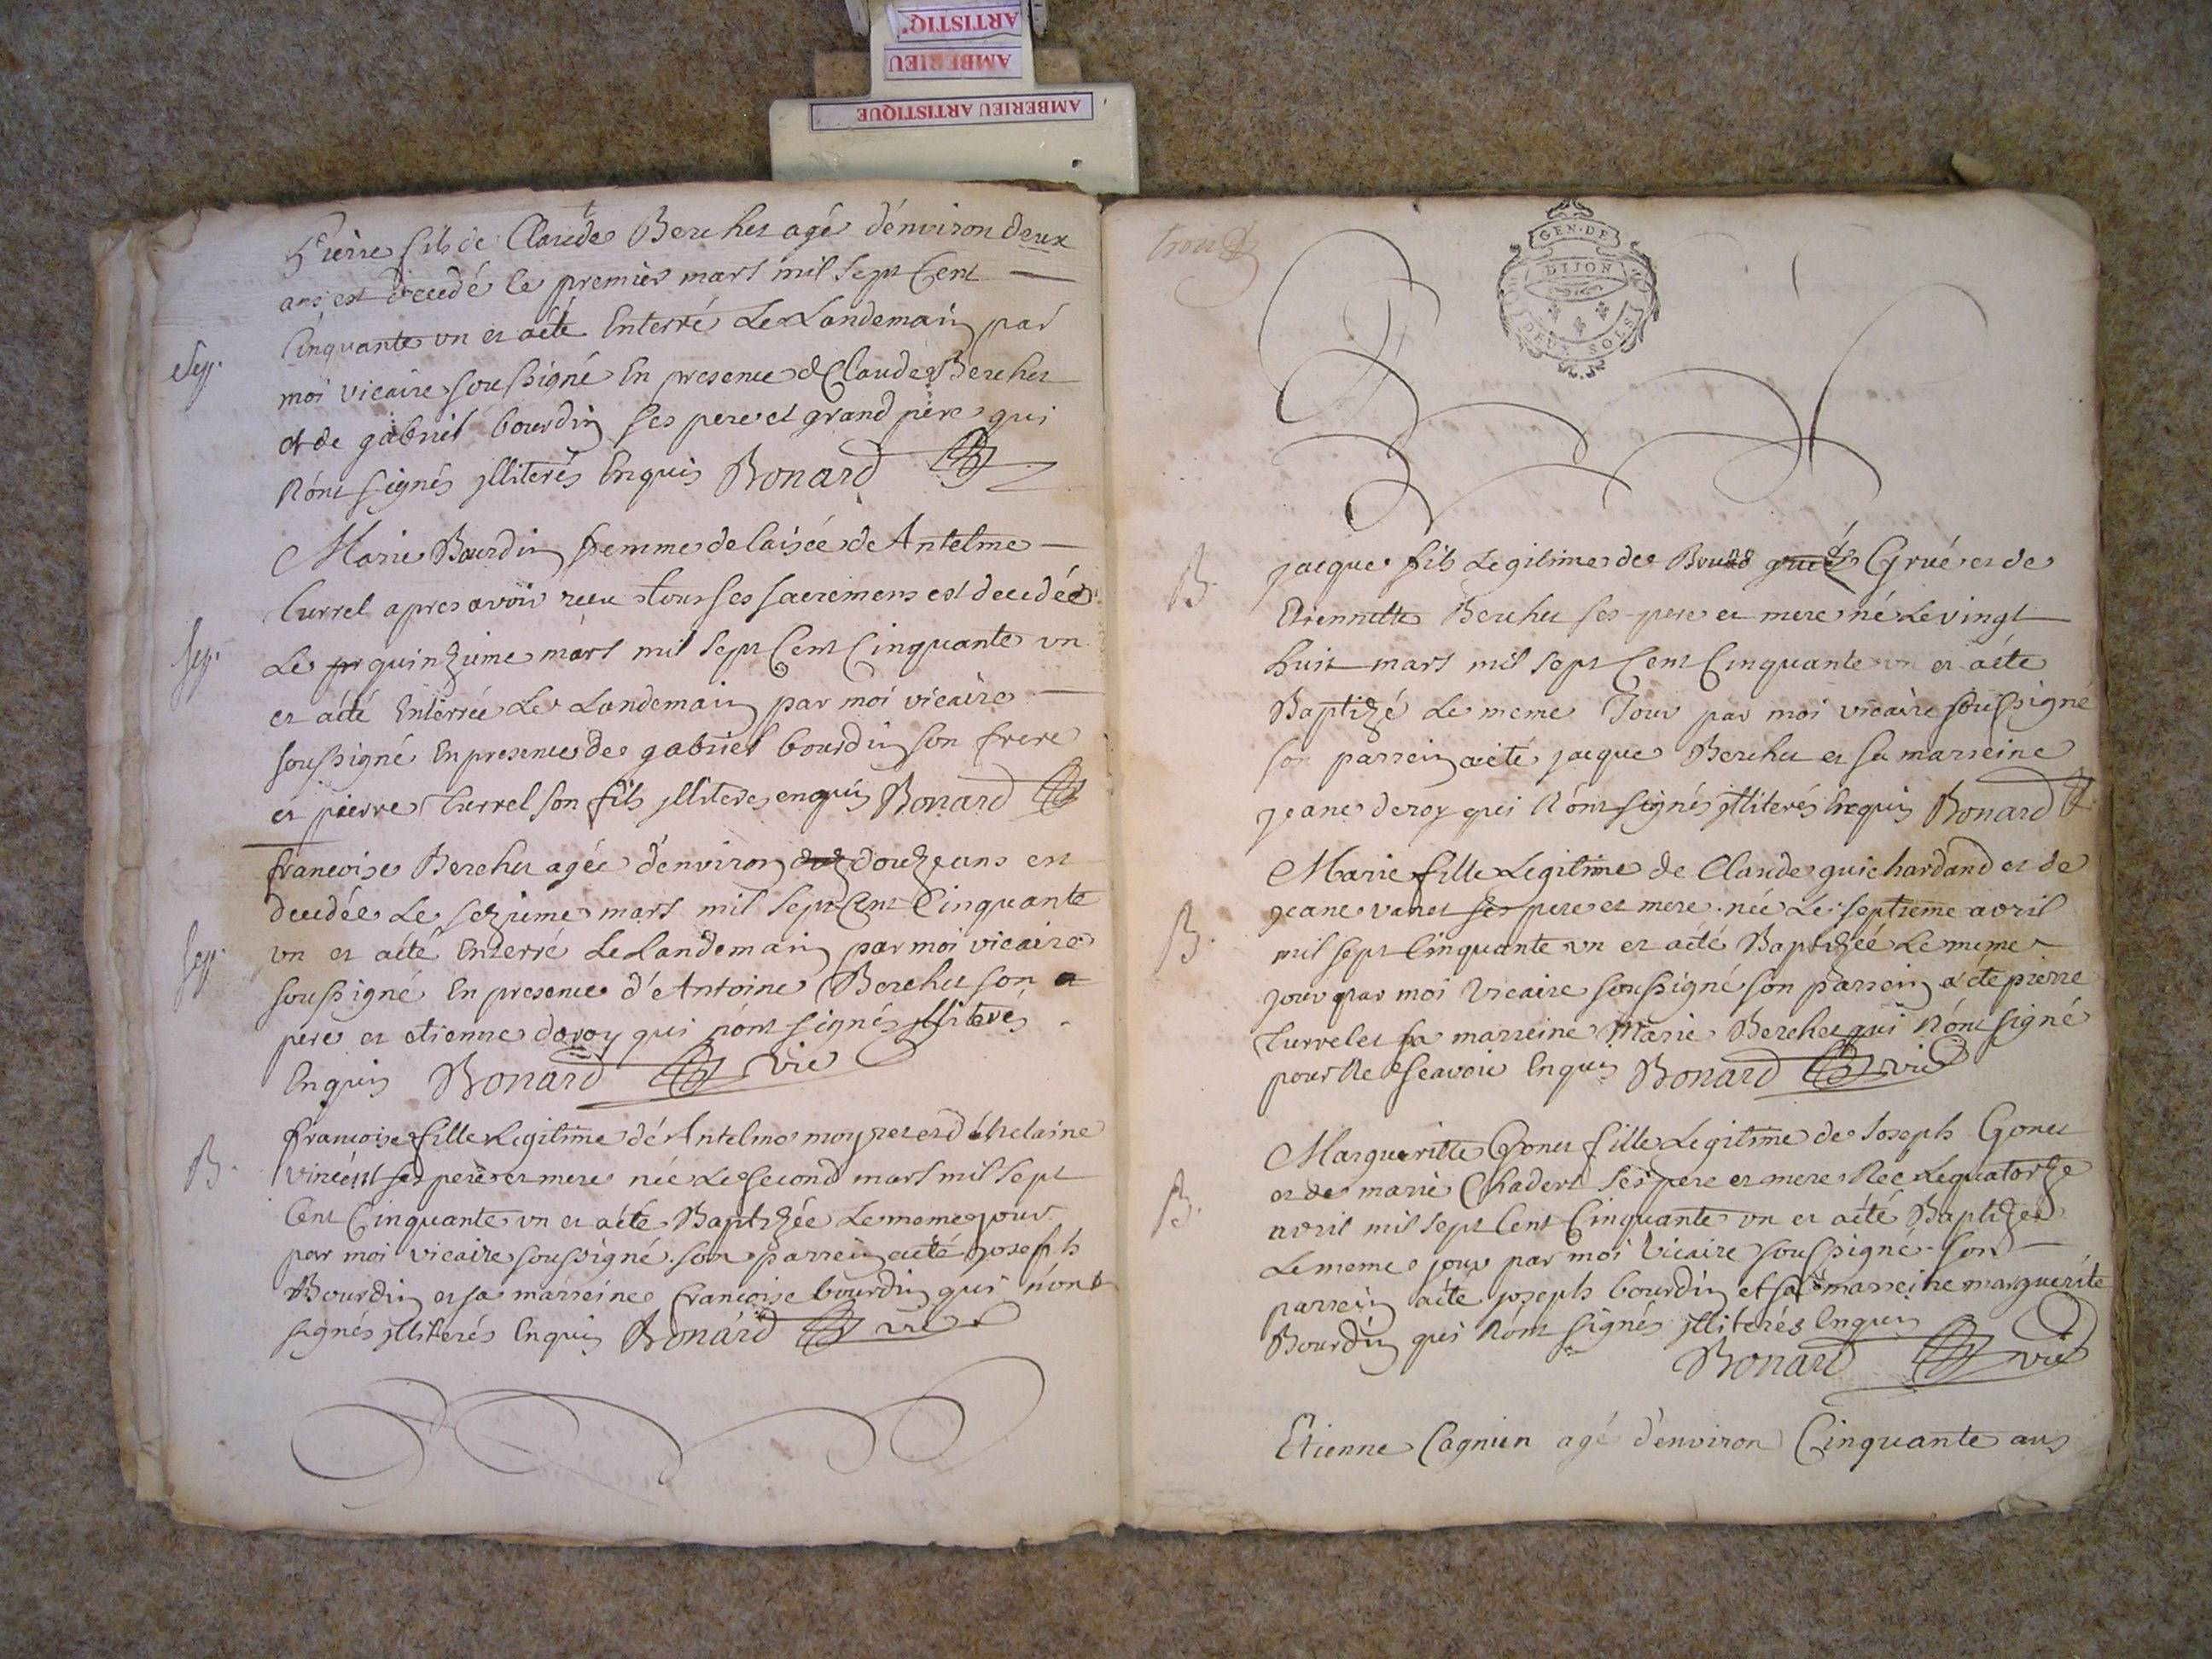 ARTISTIQ'
AMBERIEU
AMBERIEU ARTISTIQUE
Pierre fils de Claude Berchet agé d'environ deux
ans est decedé le premier mars mil sept Cent
Sep.
Cinquante un et aété Enterré Le Landemain par
moi vicaire soussigné En presence de Claude Berchet
et de gabriel bourdin ses pere et grand pere qui
n'ont signés jlliterés Enquis Bonard
Marie Bourdin femme delaisée de Antelme
turrel apres avoir recu tous ses sacremens est decedée
Sep.
Le quinzieme mars mil sept Cent Cinquante un
et aété Enterrée Le Landemain par moi vicaire
soussigné En presence de gabriel bourdin son frere
et pierre turrel son fils jlliterés enquis Bonard
francoise Berchet agée d'environ douze ans est
decedée Le sezieme mars mil sept Cent Cinquante
Sep.
un et aété Enterré Le Landemain par moi vicaire
soussigné En presence d'Antoine Berchet son
pere et etienne deroy qui n'ont signés jlliterés
Enquis Bonard vic
francoise fille Legitime de Antelme moyret et d'helaine
B.
vincent ses pere et mere née Le second mars mil sept
Cent Cinquante un et aété Baptizée Le meme jour
par moi vicaire soussigné son parrein aété joseph
Bourdin et sa marreine francoise bourdin qui n'ont
signés jlliterés Enquis Bonard vic
GEN. DE
DIJON
DEUX SOLS
B.
jacque fils Legitime de Gyué et de
Etiennette Berchet ses pere et mere né Le vingt
huit mars mil sept Cent Cinquante un et aété
Baptizé Le meme Jour par moi vicaire soussigné
son parrein aété jacque Berchet et sa marreine
jeane deroy qui n'ont signés jlliterés Enquis Bonard
Marie fille Legitime de Claude guichardand et de
B.
jeane vanet ses pere et mere née Le septieme avril
mil sept Cinquante un et aété Baptizéé Le meme
jour par moi Vicaire soussigné son parrein a été pierre
turrel et sa marreine Marie Berchet qui n'ont signé
pour ne scavoir Enquis Bonard vic
Margueritte Gonet fille Legitime de Joseph Gonet
B.
et de marie Chadert ses pere et mere née Le quatorze
avril mil sept Cent Cinquante un et aété Baptizée
Le meme jour par moi Vicaire soussigné son
parrein aété joseph bourdin et sa marreine marguerite
Bourdin qui n'ont signés jlliterés Enquis
Bonard vic
Etienne Cagnien agé d'environ Cinquante ans